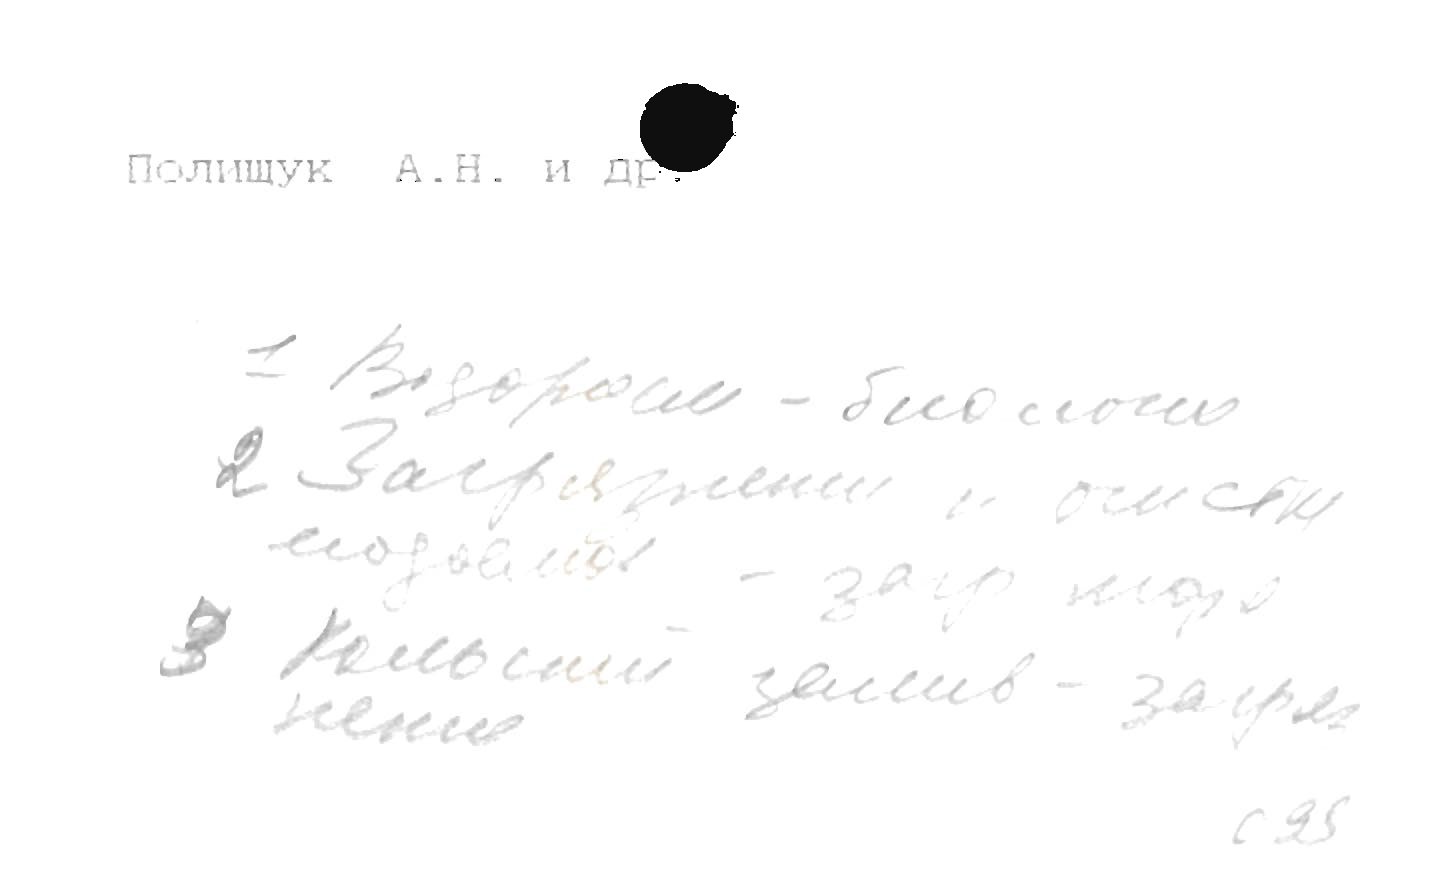 Полищук А.Н. и др.
1 Водоросли - биология
2 Загрязнение и очистка
- загр моря
3 Кольский залив - загряз
нение
с 95